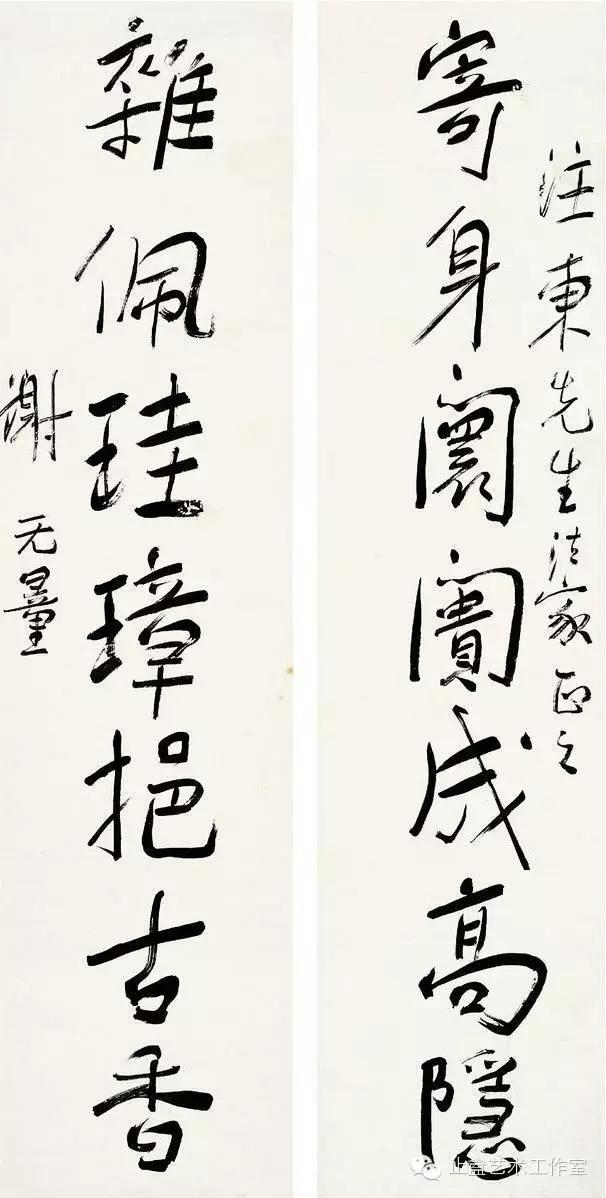 東先生法家正之
寄身闤闠成高隱
雜佩珪璋挹古香
謝无量
艺术工作室